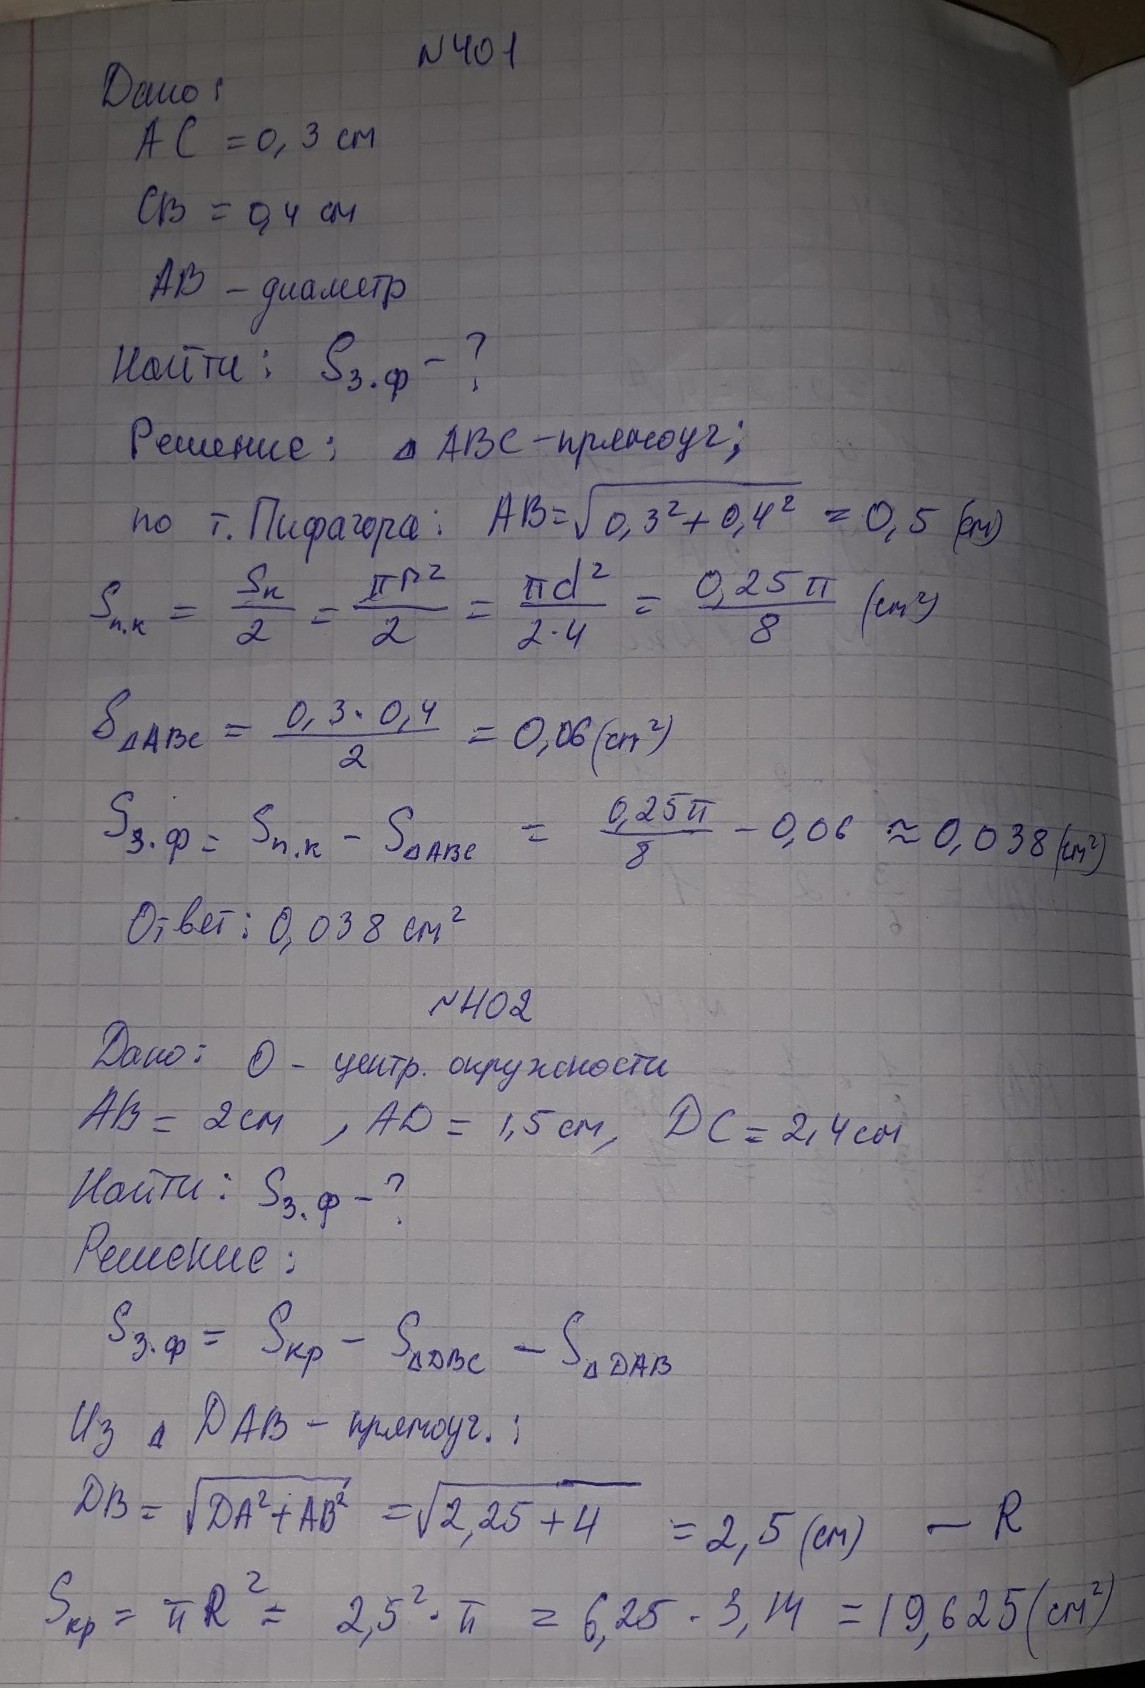 N401
Дано:
AC = 0,3 см
CB = 0,4 см
AB – диаметр
Найти: Sз.ф – ?
Решение: △ABC – прямоуг;
по т. Пифагора: AB = √(0,3² + 0,4²) = 0,5 (см)
Sп.к = Sк/2 = πr²/2 = πd²/(2·4) = 0,25π/8 (см²)
S△ABC = (0,3·0,4)/2 = 0,06 (см²)
Sз.ф = Sп.к – S△ABC = 0,25π/8 – 0,06 ≈ 0,038 (см²)
Ответ: 0,038 см²
N402
Дано: O – центр. окружности
AB = 2 см, AD = 1,5 см, DC = 2,4 см
Найти: Sз.ф – ?
Решение:
Sз.ф = Sкр – S△DBC – S△DAB
Из △ DAB – прямоуг. :
DB = √(DA² + AB²) = √(2,25 + 4) = 2,5 (см) – R
Sкр = πR² = 2,5²·π = 6,25·3,14 = 19,625 (см²)